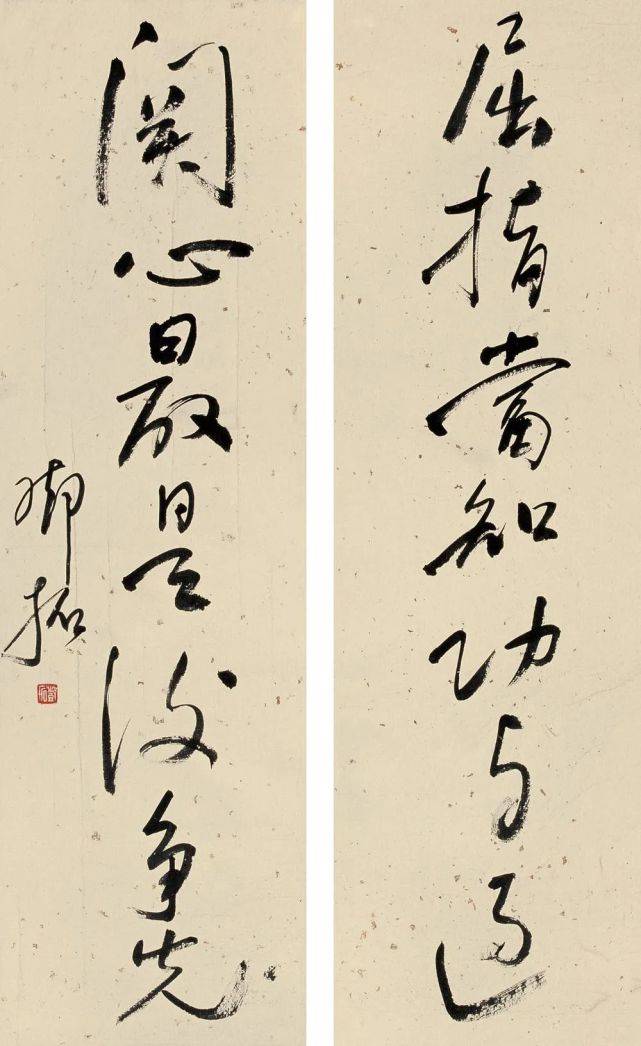 屈指当知功与过
关心最是后争先
邓拓